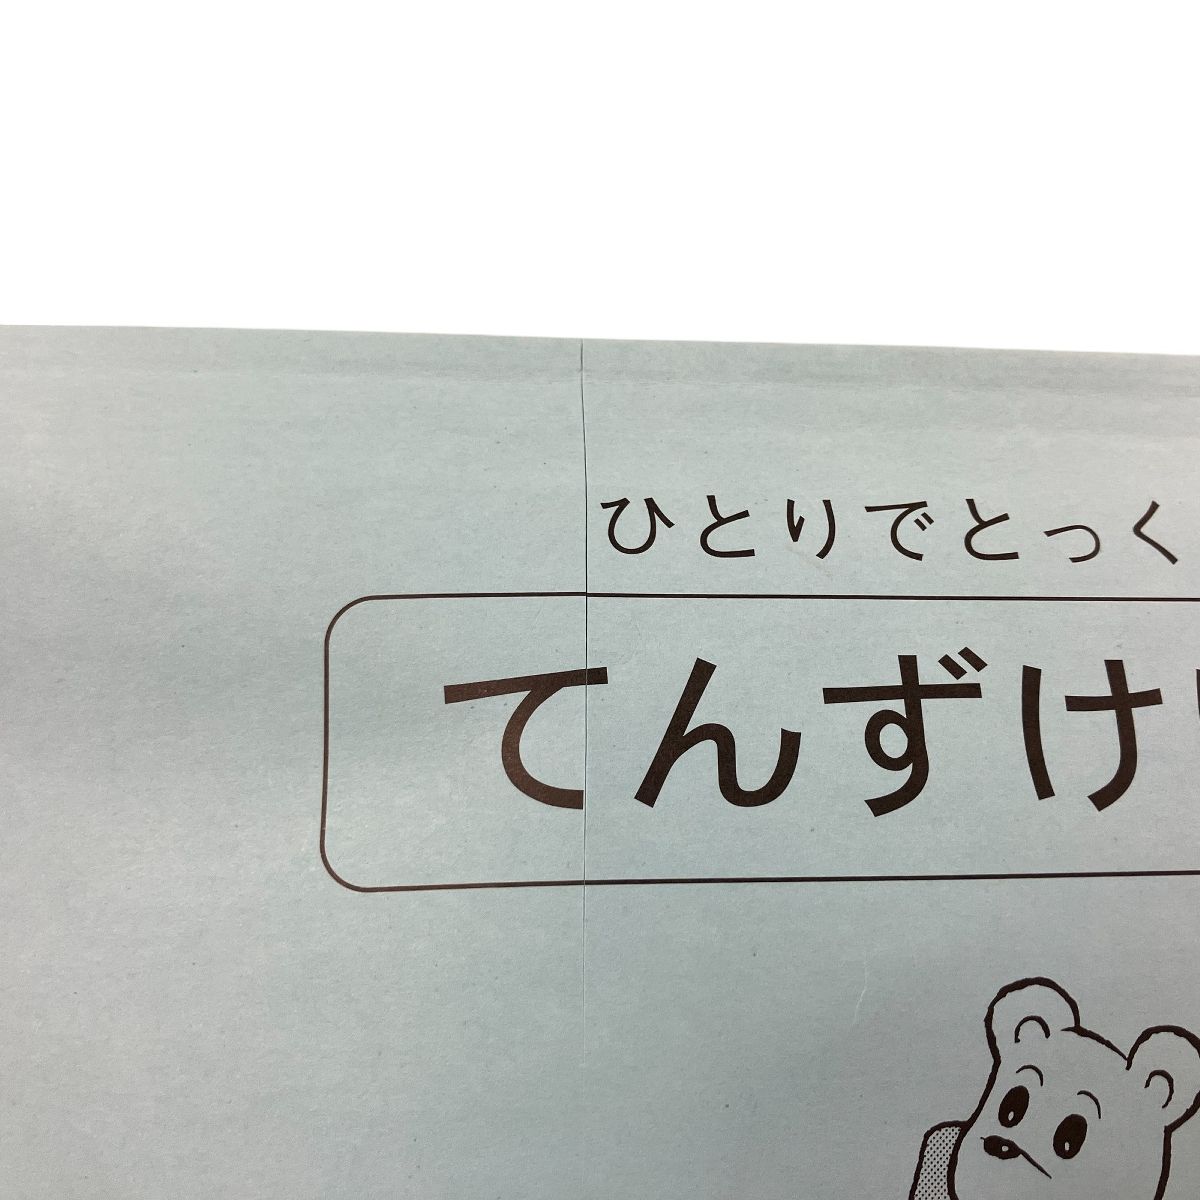 ひとりでとっく
てんずけ